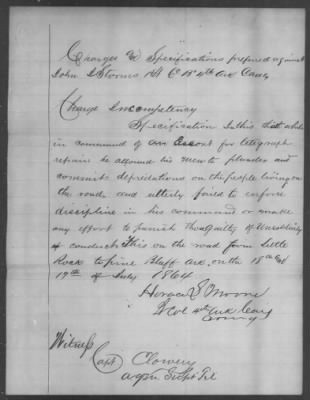 Charges & Specifications prepared against
John S Storms 1st Lt Co 4th Ark Cavy
Charge Incompetency
Specification In this that while
in command of an Escort for telegraph
repair he allowed his men to plunder and
commit depredations on the people living on
the road and utterly failed to enforce
discipline in his command or make
any effort to punish those guilty of
conduct This on the road from Little
Rock to Pine Bluff Ark, on the 18th and
19th of July 1864
Horace L Moore
Lt Col 4th Ark Cavy
Comdg
Witness
Capt Clowery
Supt Tel